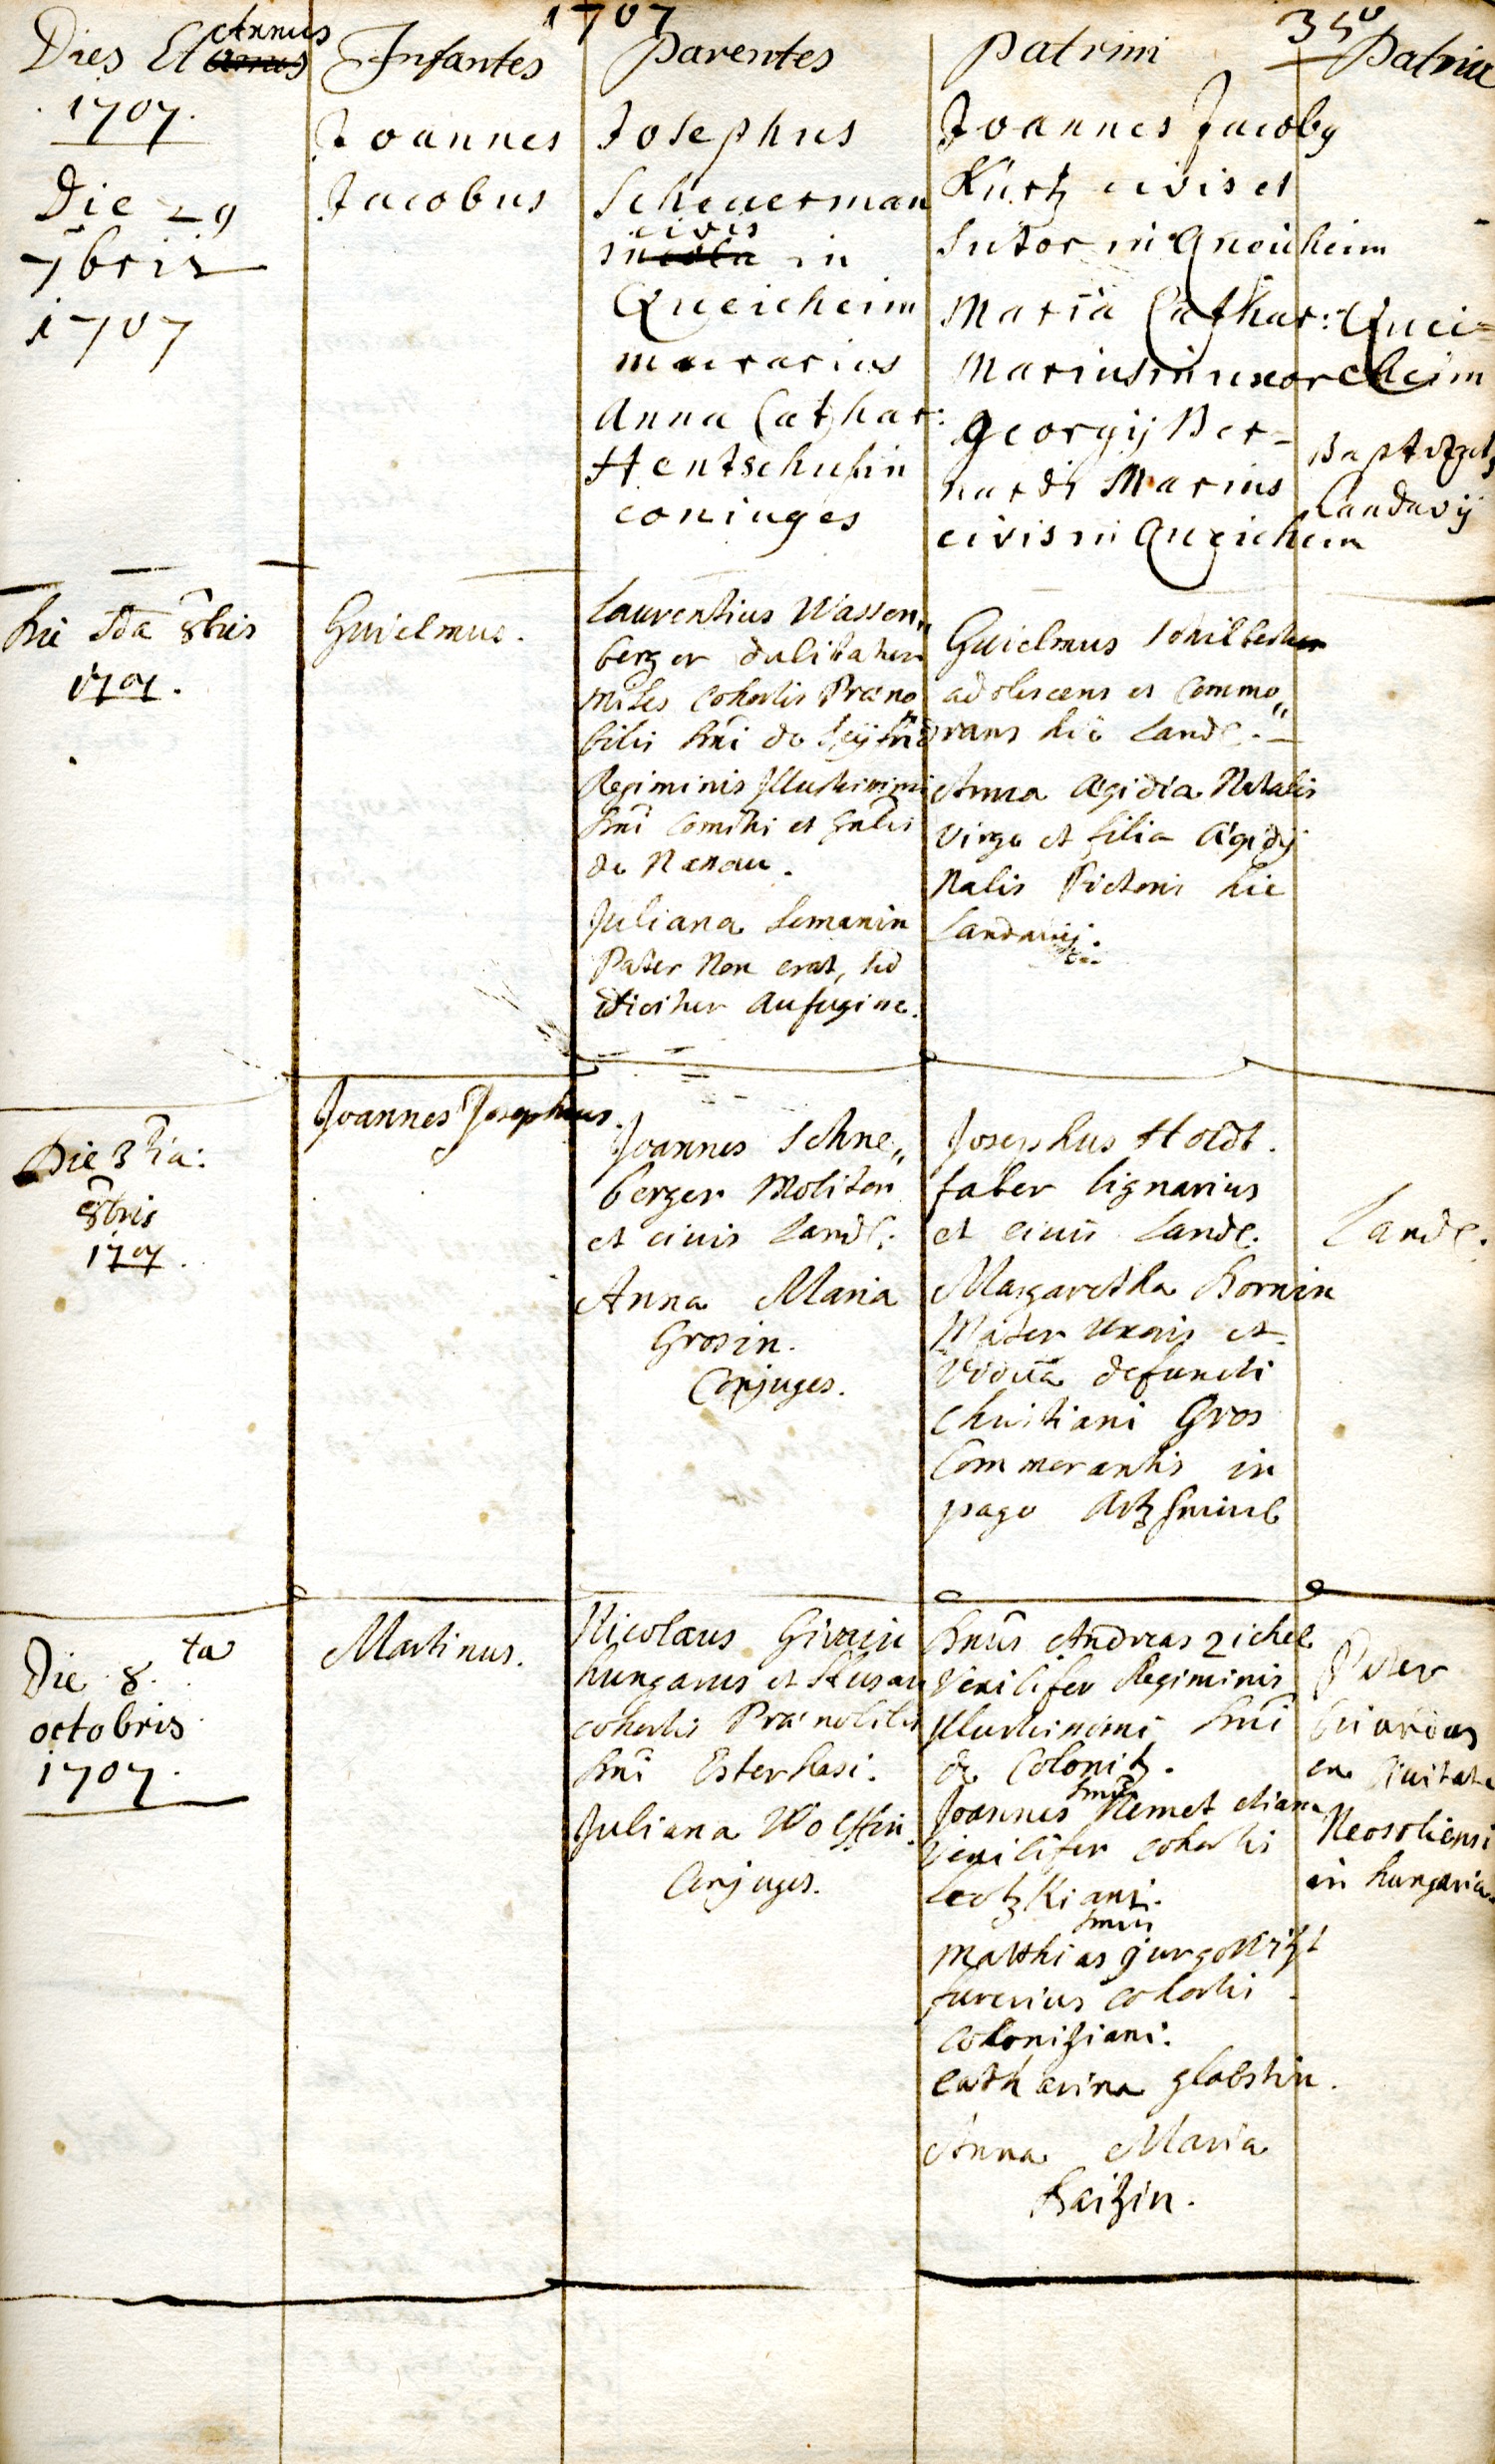 1707
350
Dies Et Annus
Infantes
Parentes
Patrini
Patria
1707.
Die 29
7bris
1707
Joannes
Jacobus
Josephus
Scheuerman
civis
in
Queicheim
murarius
Anna Cathar:
Hentschuhin
coniuges
Joannes Jacobg
Kurtz civis et
Sutor in Queicheim
Maria Cathar:
Mariusin uxor
Georgij Ber-
nardi Marius
civis in Queicheim
Quei=
cheim
Baptizatg
Landavij
Die 8bris
1707.
Guielmus.
Laurentius Wassen„
berger
Miles Cohortis Præno„
bilis Dni de
Regiminis Illustrissimi
Dni Comitis et Gnlis
de Nanau.
Juliana Lemanin
Pater Non erat, sed
dicitur aufugisse.
Guielmus
adolescens et Commo„
rans hic Landt.
Anna Ægidia Natalis
Virgo et filia Ægidij
Nalis Pictoris hic
Landavij.
Die 3tia:
8bris
1707.
Joannes Josephus.
Joannes Schne„
berger Molitor
et civis Landt:
Anna Maria
Grosin.
Conjuges.
Josephus Holdt.
faber lignarius
et civis Landt.
Margaretha Hornin
Mater Uxoris et
Vidua defuncti
Christiani Gros
Commorantis in
pago
Landt.
Die 8.ta
octobris
1707.
Martinus.
Nicolaus Givain
hungarus et Husar
cohortis Prænobilis
Dni Esterhasi.
Juliana Wolffin.
Conjuges.
Dnus Andreas Zichel
Vexilifer Regiminis
Illustrissimi Dni
de Colonitz.
Dnus
Joannes Nemet etiam
Vexilifer cohortis
Dnus
Matthias
furerius cohortis
Coloniziani.
Catharina glabstin.
Anna Maria
Raizin.
Pater
oriundus
ex Civitate
Neosoliensi
in hungaria.